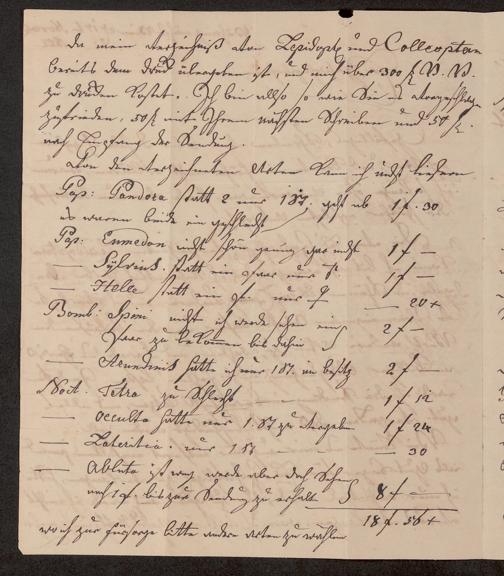 Da mein Verzeichniß von Lepidopt und Colleopteren
bereits dem Druck übergeben ist, und mich über 300 f
zu drucken kostet. Ich bin also so wie Sie es
zufrieden, 50 f mit Ihrem nächsten Schreiben und 50 f.
nach Empfang der Sendung.
Von den verzeichneten Arten kann ich nicht liefern
Pap: Pandora statt 2 nur 1 St. geht ab 1 f. 30
es waren beide ein Geschlecht
Pap: Eumedon nicht schön genug gar nicht 1 f —
— Sylvius. statt ein Paar nur 1 f —
— Helle statt ein nur ♀ — 20 +
Bomb: Spini nicht ich werde sehen ein
Paar zu bekommen bis dahin } 2 f —
— Arundinis hatte ich nur 1 St. im besitz 2 f —
Noct. Tetra zu schlecht — 1 f 12
— Occulta hatte nur 1 St zu vergeben 1 f 24
— Lateritia. nur 1 St — 30
— Abluta ist weg werde aber doch sehen
noch bis zur Sendung zu erhalten } 8 f —
18 f. 56 +
wo ich zur bitte andere Arten zu wählen